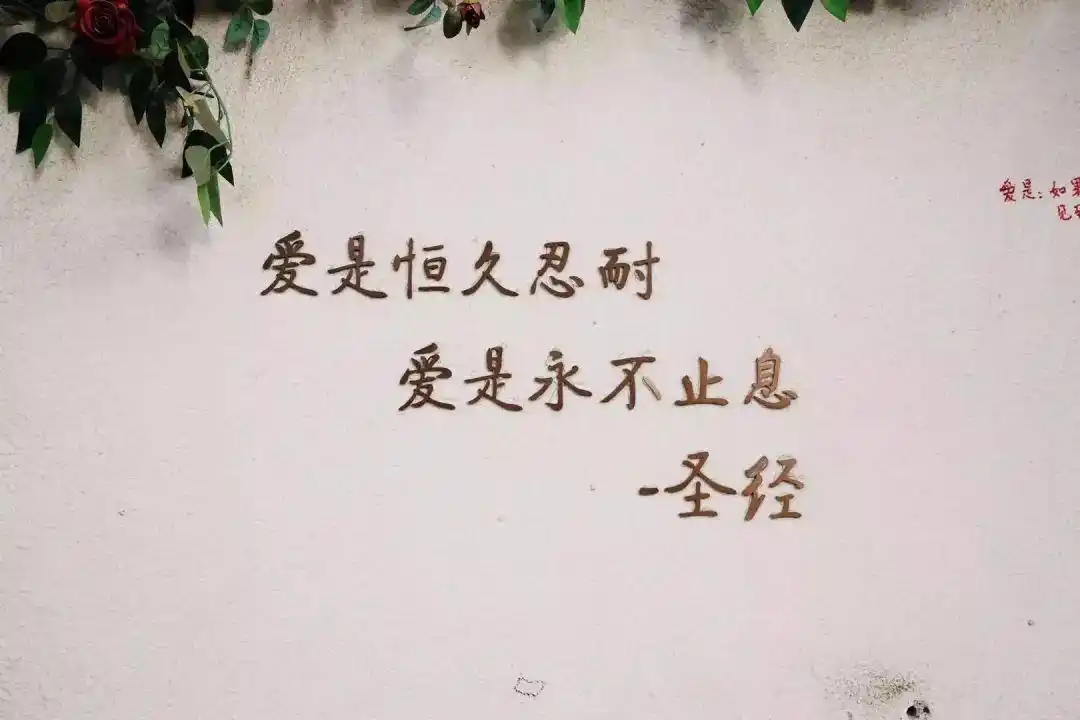 爱是恒久忍耐
爱是永不止息
-圣经
爱是：如果